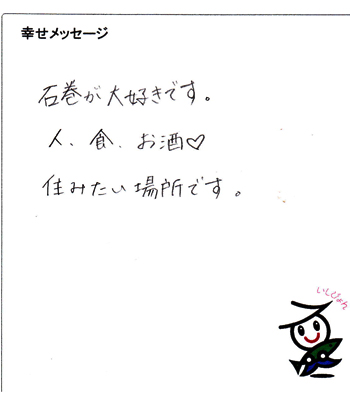 幸せメッセージ
石巻が大好きです。
人、食、お酒♡
住みたい場所です。
いしぴょん